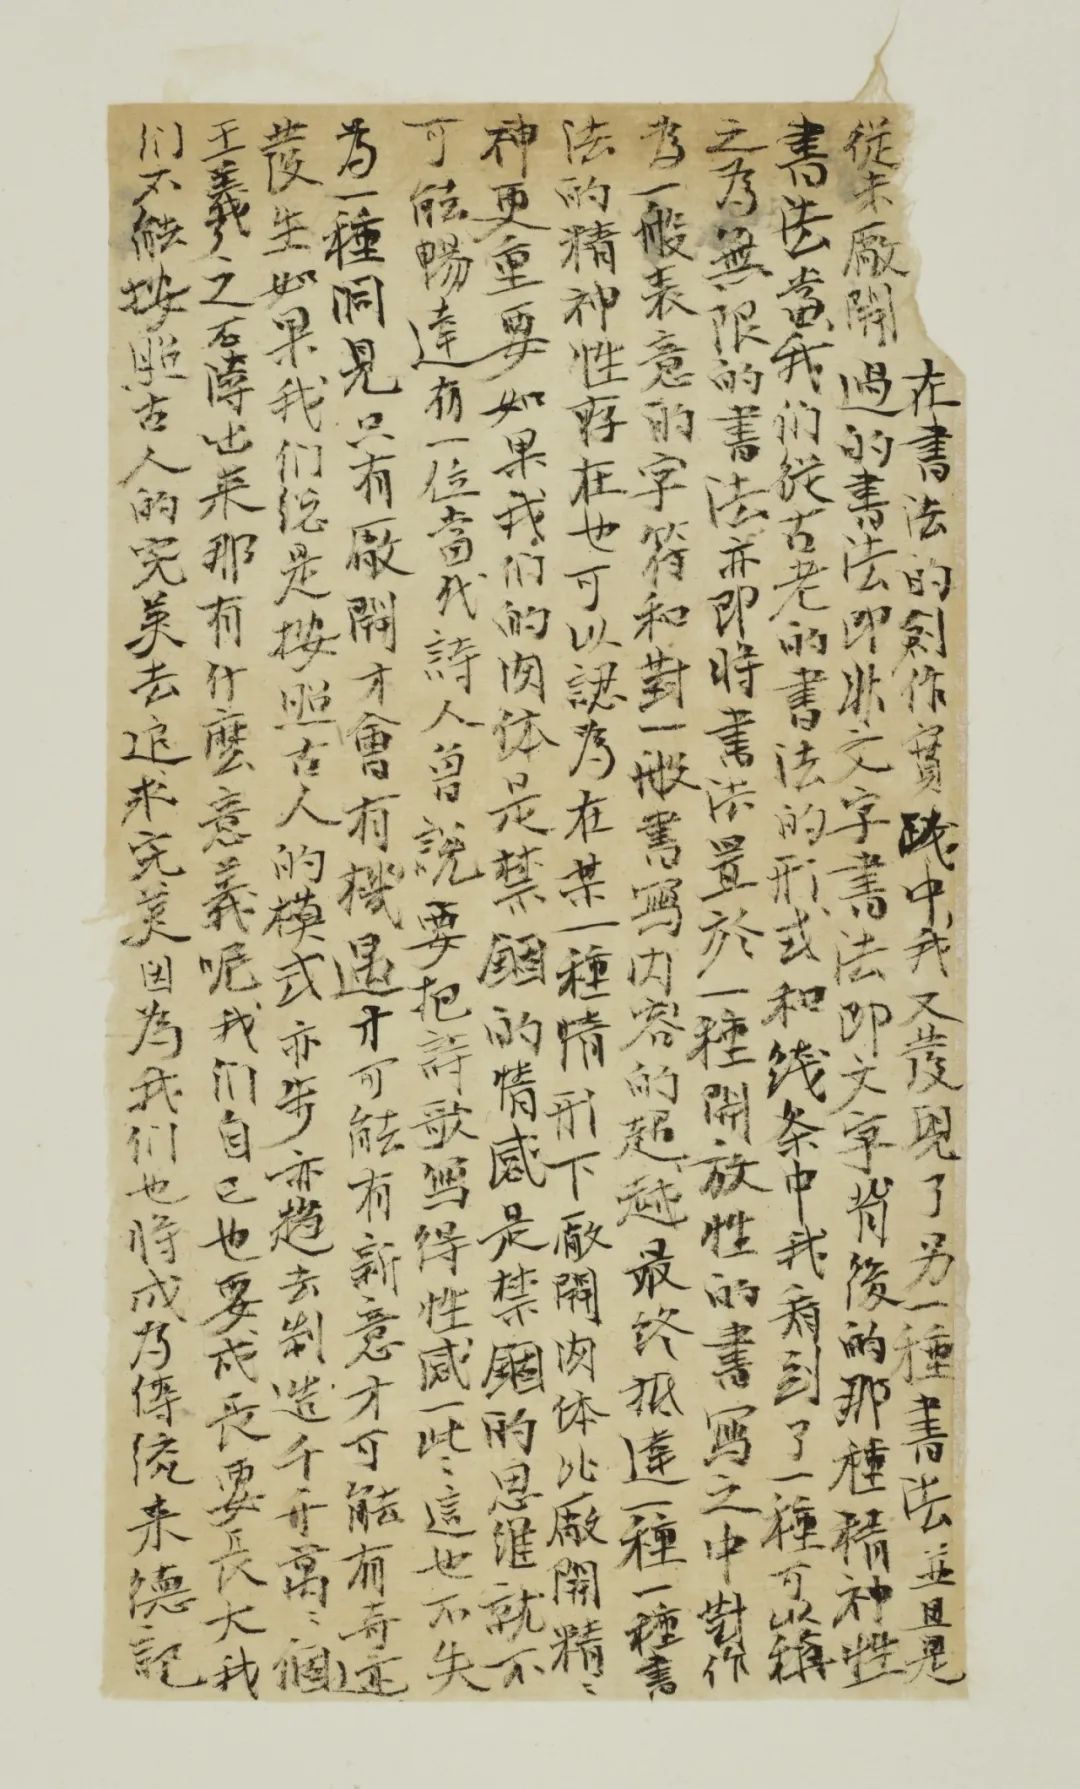 在書法的創作實踐中我又发現了另一種書法並且是
從未厰開過的書法即非文字書法即文字背後的那種精神性
書法當我们從古老的書法的形式和线条中我看到了一種可以稱
之為無限的書法亦即將書法置於一種開放性的書寫之中對作
為一般表意的字符和對一般書寫内容的超越最终抵達一種一種書
法的精神性存在也可以認為在某一種情形下厰開肉体比厰開精々
神更重要如果我们的肉体是禁錮的情感是禁錮的思維就不
可能暢達有一位當代詩人曾說要把詩歌寫得性感一些々這也不失
為一種洞見只有厰開才會有機遇才可能有新意才可能有奇迹
发生如果我们总是按照古人的模式亦步亦趋去制造千千萬々個
王羲々之石濤出来那有什麼意義呢我们自己也要成長要長大我
们不能按照古人的完美去追求完美因為我们也將成為傳統来德記